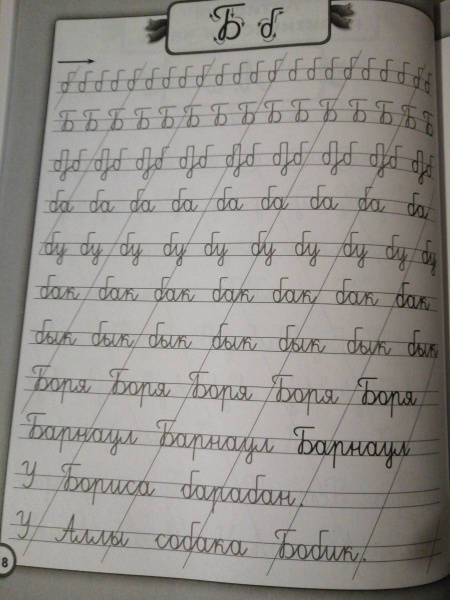 Б б
б б б б б б б б б б б б б б б б б б б б б б
Б Б Б Б Б Б Б Б Б Б Б Б Б Б Б
ба ба ба ба ба ба ба ба ба
бу бу бу бу бу бу бу бу бу бу
бак бак бак бак бак бак бак
бык бык бык бык бык бык бык
Боря Боря Боря Боря Боря
Барнаул Барнаул Барнаул
У Бориса барабан.
У Аллы собака Бобик.
8